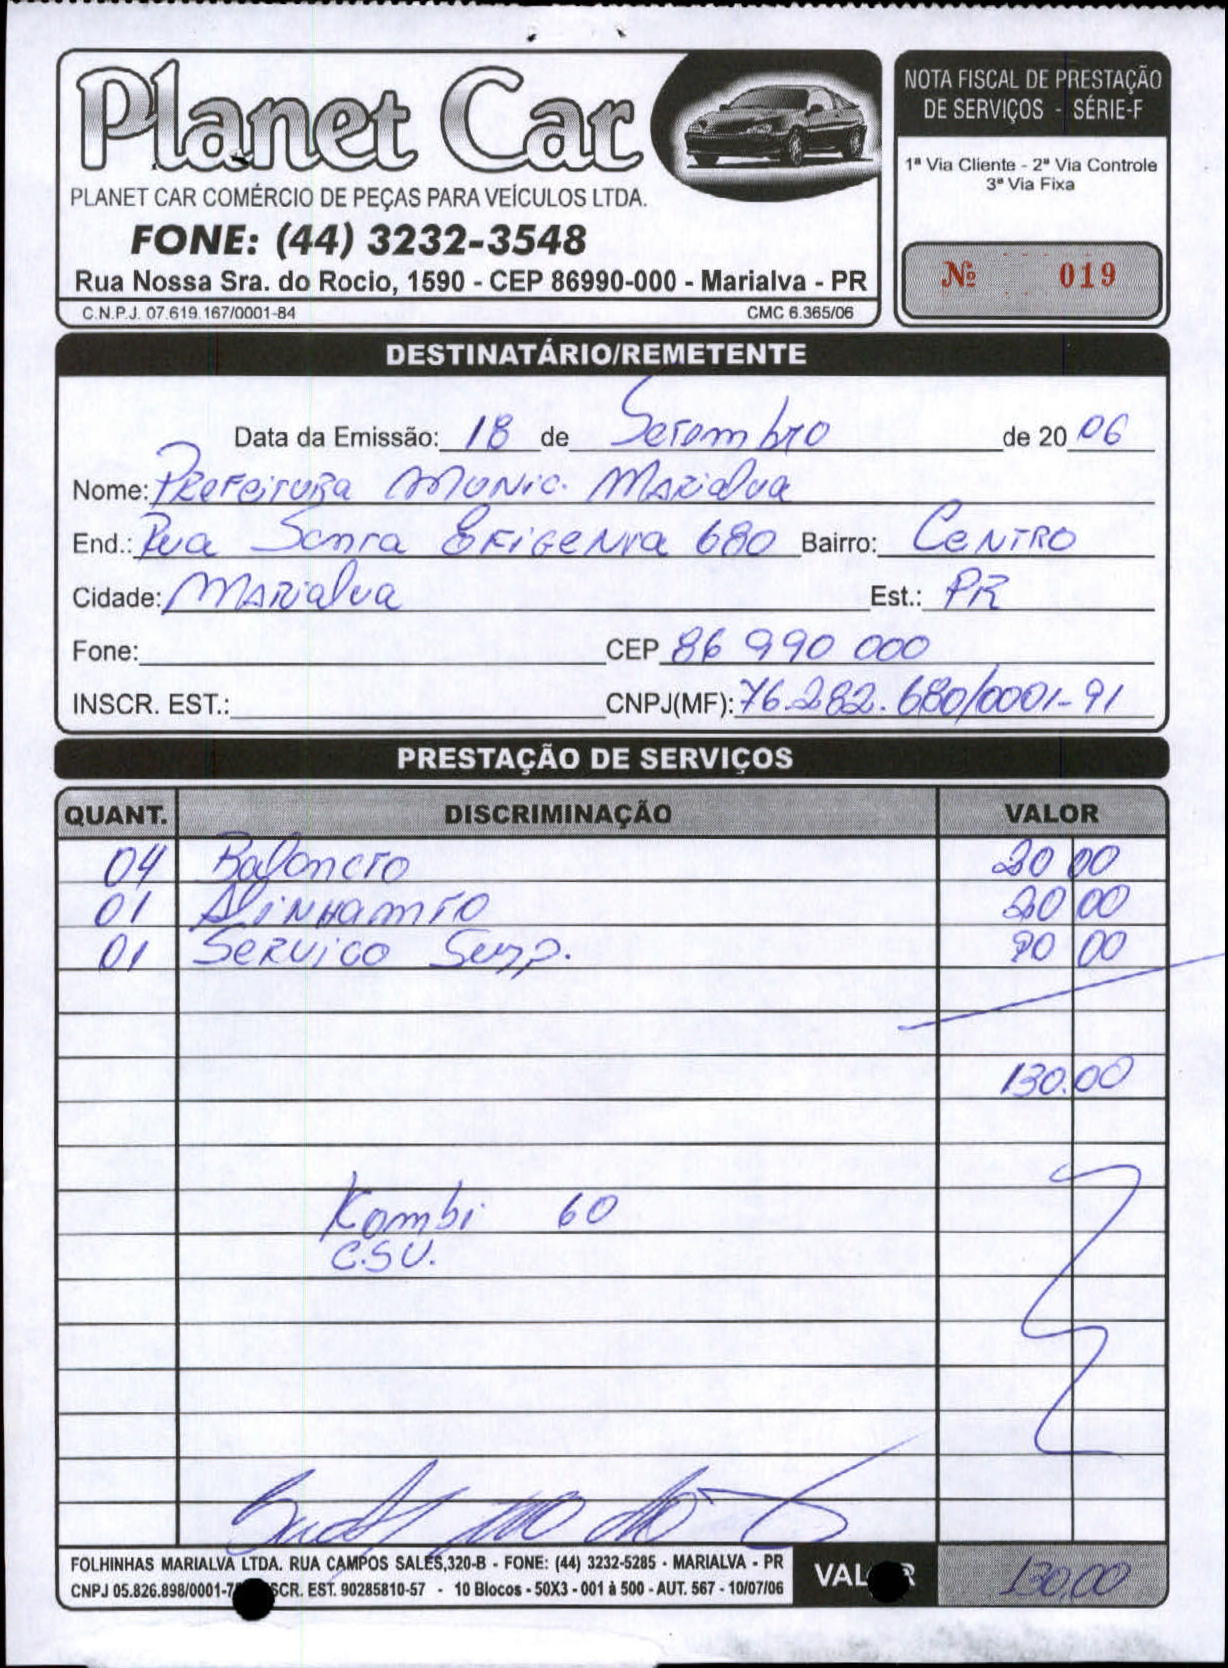 Planet Car
PLANET CAR COMÉRCIO DE PEÇAS PARA VEÍCULOS LTDA.
FONE: (44) 3232-3548
Rua Nossa Sra. do Rocio, 1590 - CEP 86990-000 - Marialva - PR
C.N.P.J. 07.619.167/0001-84 CMC 6.365/06
NOTA FISCAL DE PRESTAÇÃO
DE SERVIÇOS - SÉRIE-F
1ª Via Cliente - 2ª Via Controle
3ª Via Fixa
Nº 019
DESTINATÁRIO/REMETENTE
Data da Emissão: 18 de Setembro de 20 06
Nome: Prefeitura Munic. Marialva
End.: Rua Santa Efigenia 680 Bairro: Centro
Cidade: Marialva Est.: PR
Fone: CEP 86 990 000
INSCR. EST.: CNPJ(MF): 76.282.680/0001-91
PRESTAÇÃO DE SERVIÇOS
QUANT. DISCRIMINAÇÃO VALOR
04 Balancto 20 00
01 Alinhamto 20 00
01 Servico Susp. 90 00
130.00
Kombi 60
C.S.U.
FOLHINHAS MARIALVA LTDA. RUA CAMPOS SALES,320-B - FONE: (44) 3232-5285 - MARIALVA - PR
CNPJ 05.826.898/0001-7 SCR. EST. 90285810-57 - 10 Blocos - 50X3 - 001 à 500 - AUT. 567 - 10/07/06
VALOR 130,00